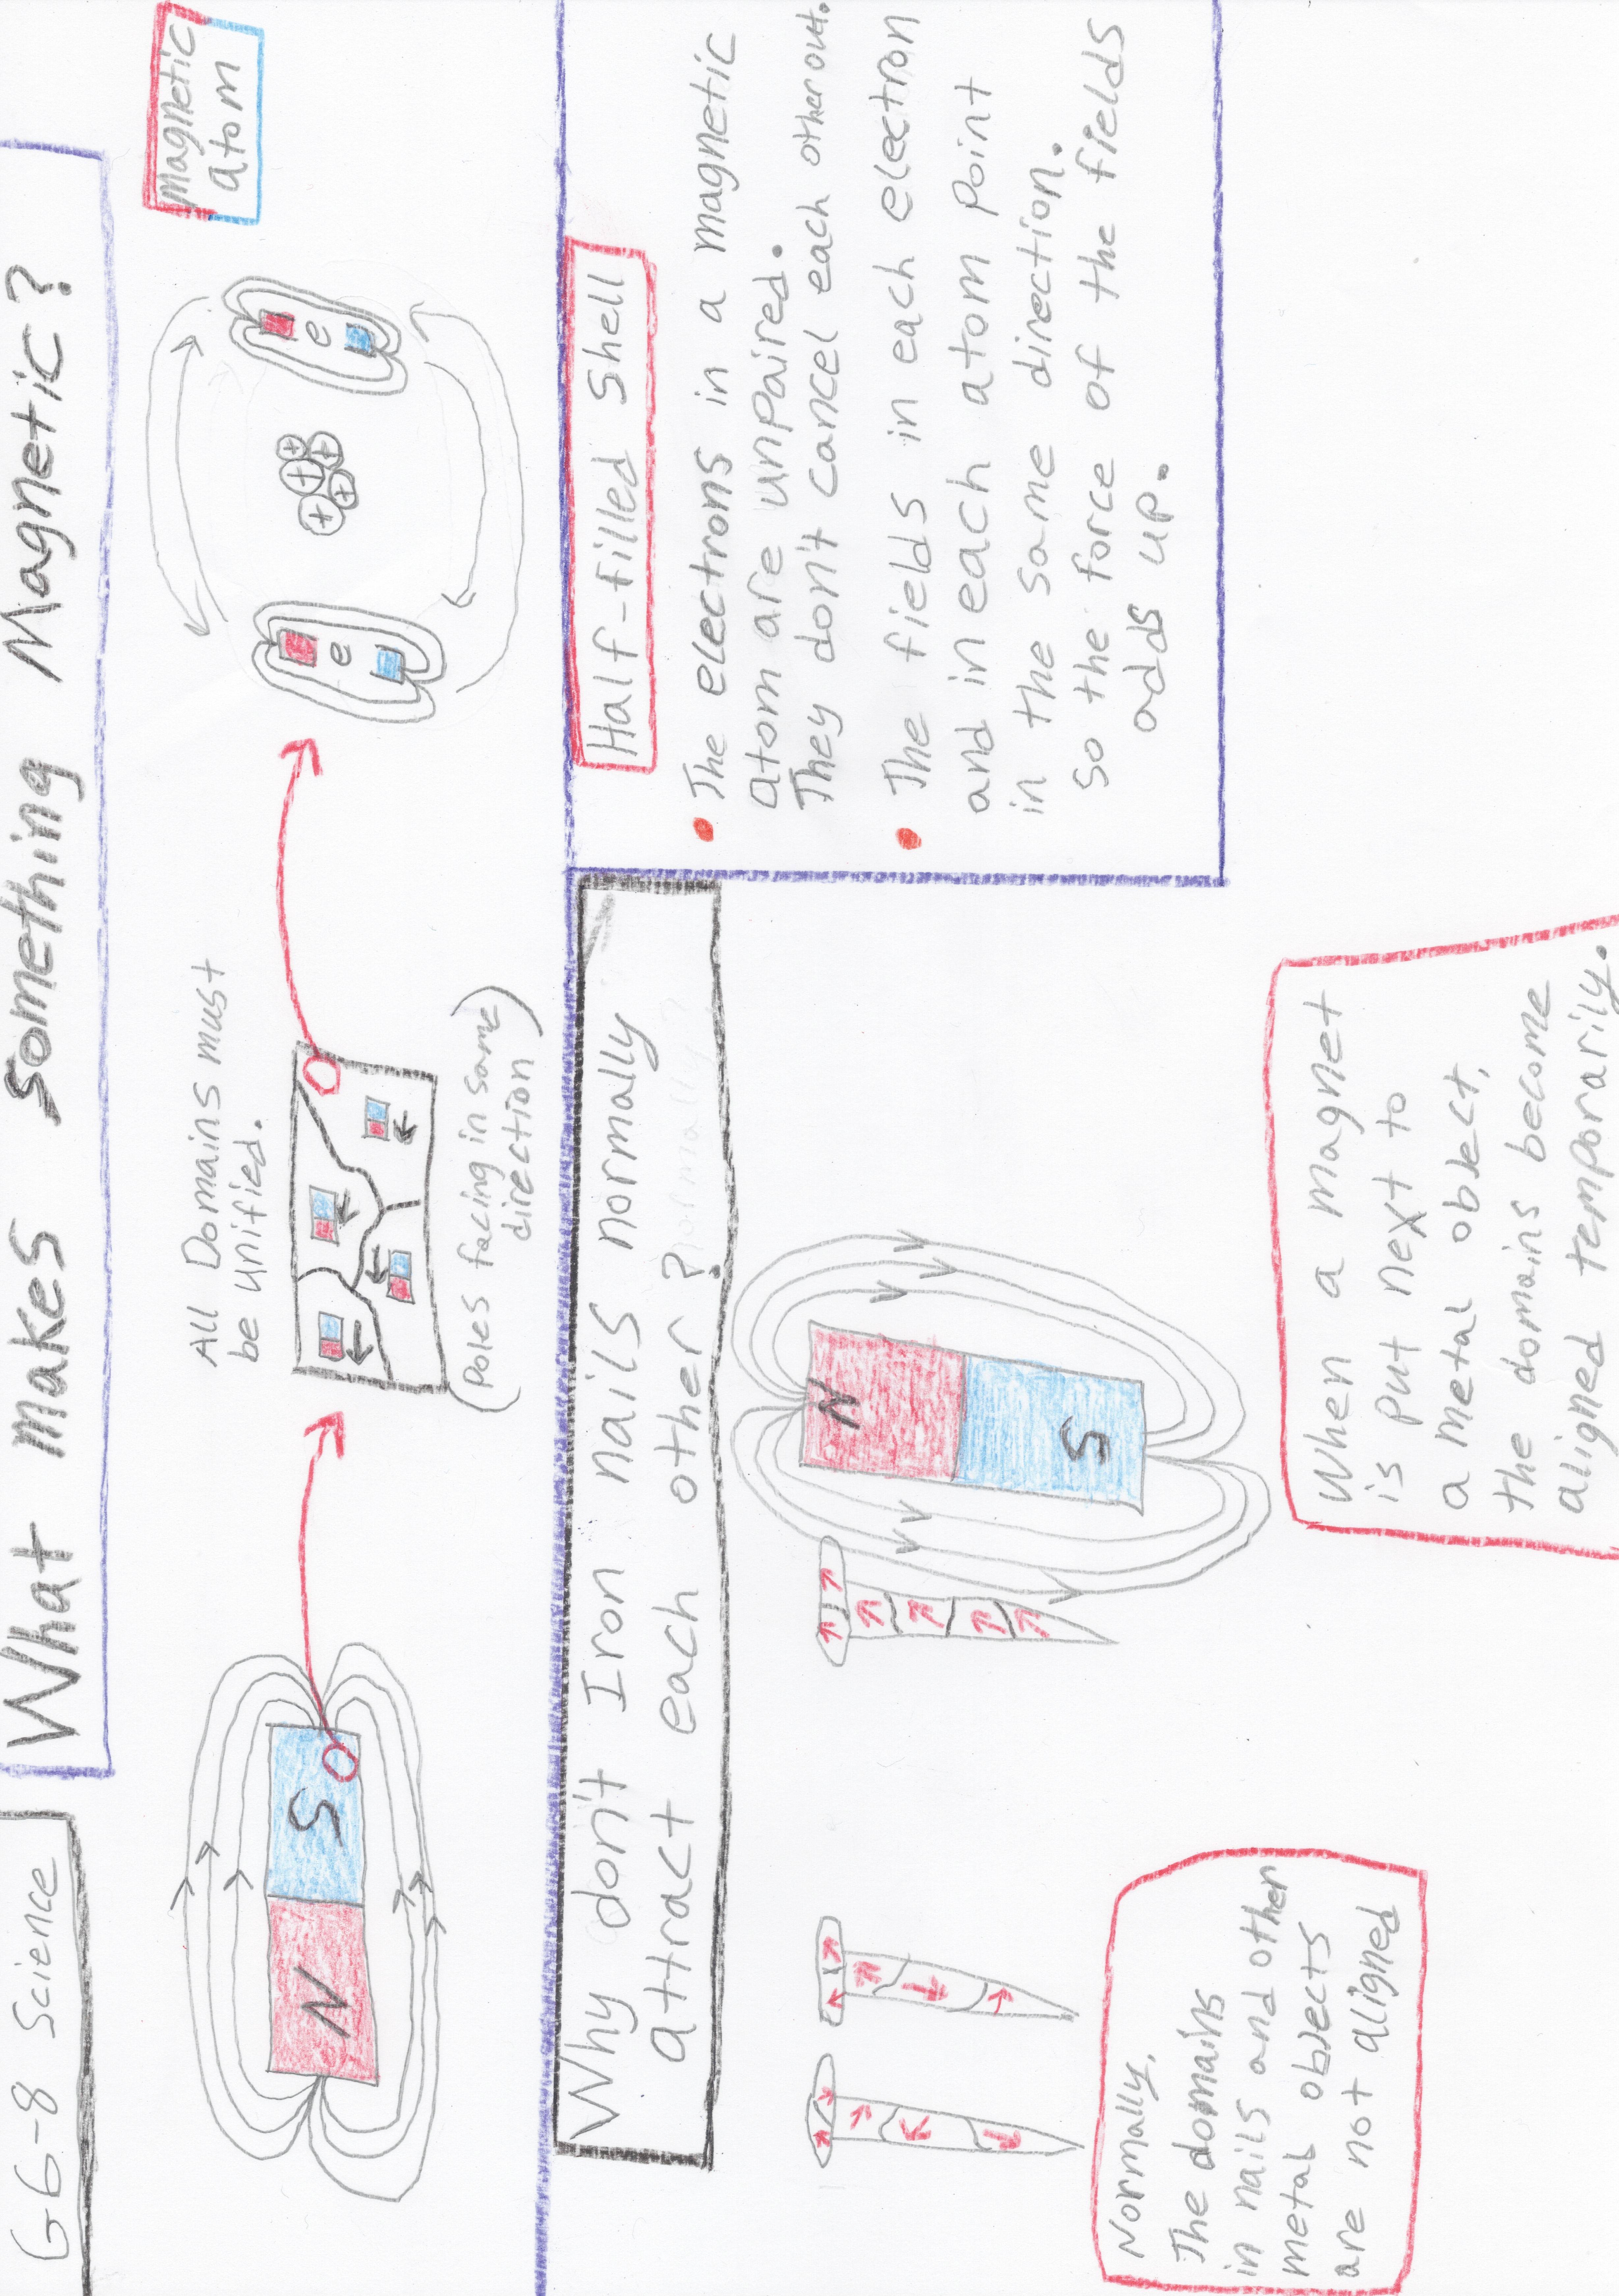 G6-8 Science
What makes Something Magnetic?
N
S
All Domains must
be unified.
(Poles facing in same
direction)
e
e
+
+
+
+
+
Magnetic
atom
Why don't Iron nails normally
attract each other?
normally?
Normally,
The domains
in nails and other
metal objects
are not aligned
N
S
When a magnet
is put next to
a metal object,
the domains become
aligned temporarily.
Half-filled Shell
• The electrons in a magnetic
atom are unpaired.
They don't cancel each other out.
• The fields in each electron
and in each atom point
in the same direction.
So the force of the fields
adds up.